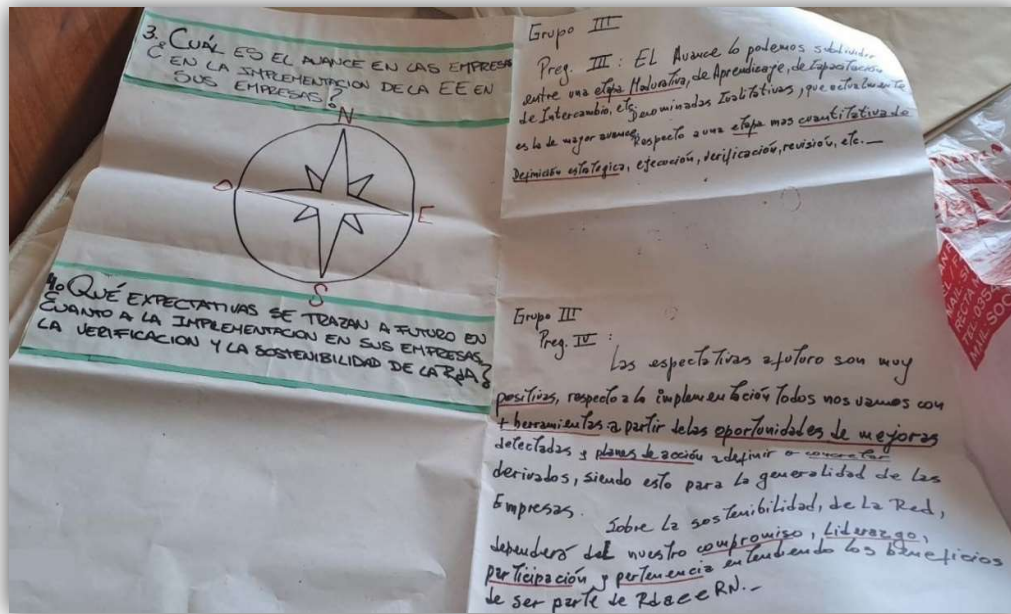 3. CUÁL ES EL AVANCE EN LAS EMPRESAS
¿ EN LA IMPLEMENTACION DE LA EE EN
SUS EMPRESAS?
N
O
E
S
4o QUÉ EXPECTATIVAS SE TRAZAN A FUTURO EN
CUANTO A LA IMPLEMENTACION EN SUS EMPRESAS,
LA VERIFICACION Y LA SOSTENIBILIDAD DE LA RdA?
Grupo III
Preg. III: EL Avance lo podemos subdividir
entre una etapa Madurativa, de Aprendizaje, de Capacitación
de Intercambio, etc. Denominadas Cualitativas, que actualmente
es la de mayor avance Respecto a una etapa mas cuantitativa de
Definición estrategica, ejecución, verificación, revisión, etc.—
Grupo III
Preg. IV :
Las espectativas a futuro son muy
positivas, respecto a la implementación Todos nos vamos con
+ herramientas a partir de las oportunidades de mejoras
detectadas y planes de acción a definir o concretar
derivados, siendo esto para la generalidad de las
Empresas.
Sobre La sostenibilidad, de La Red,
dependerá del nuestro compromiso, Liderazgo,
participación y pertenencia entendiendo los beneficios
de ser parte de RdaeeRN.-
MAIL SOC